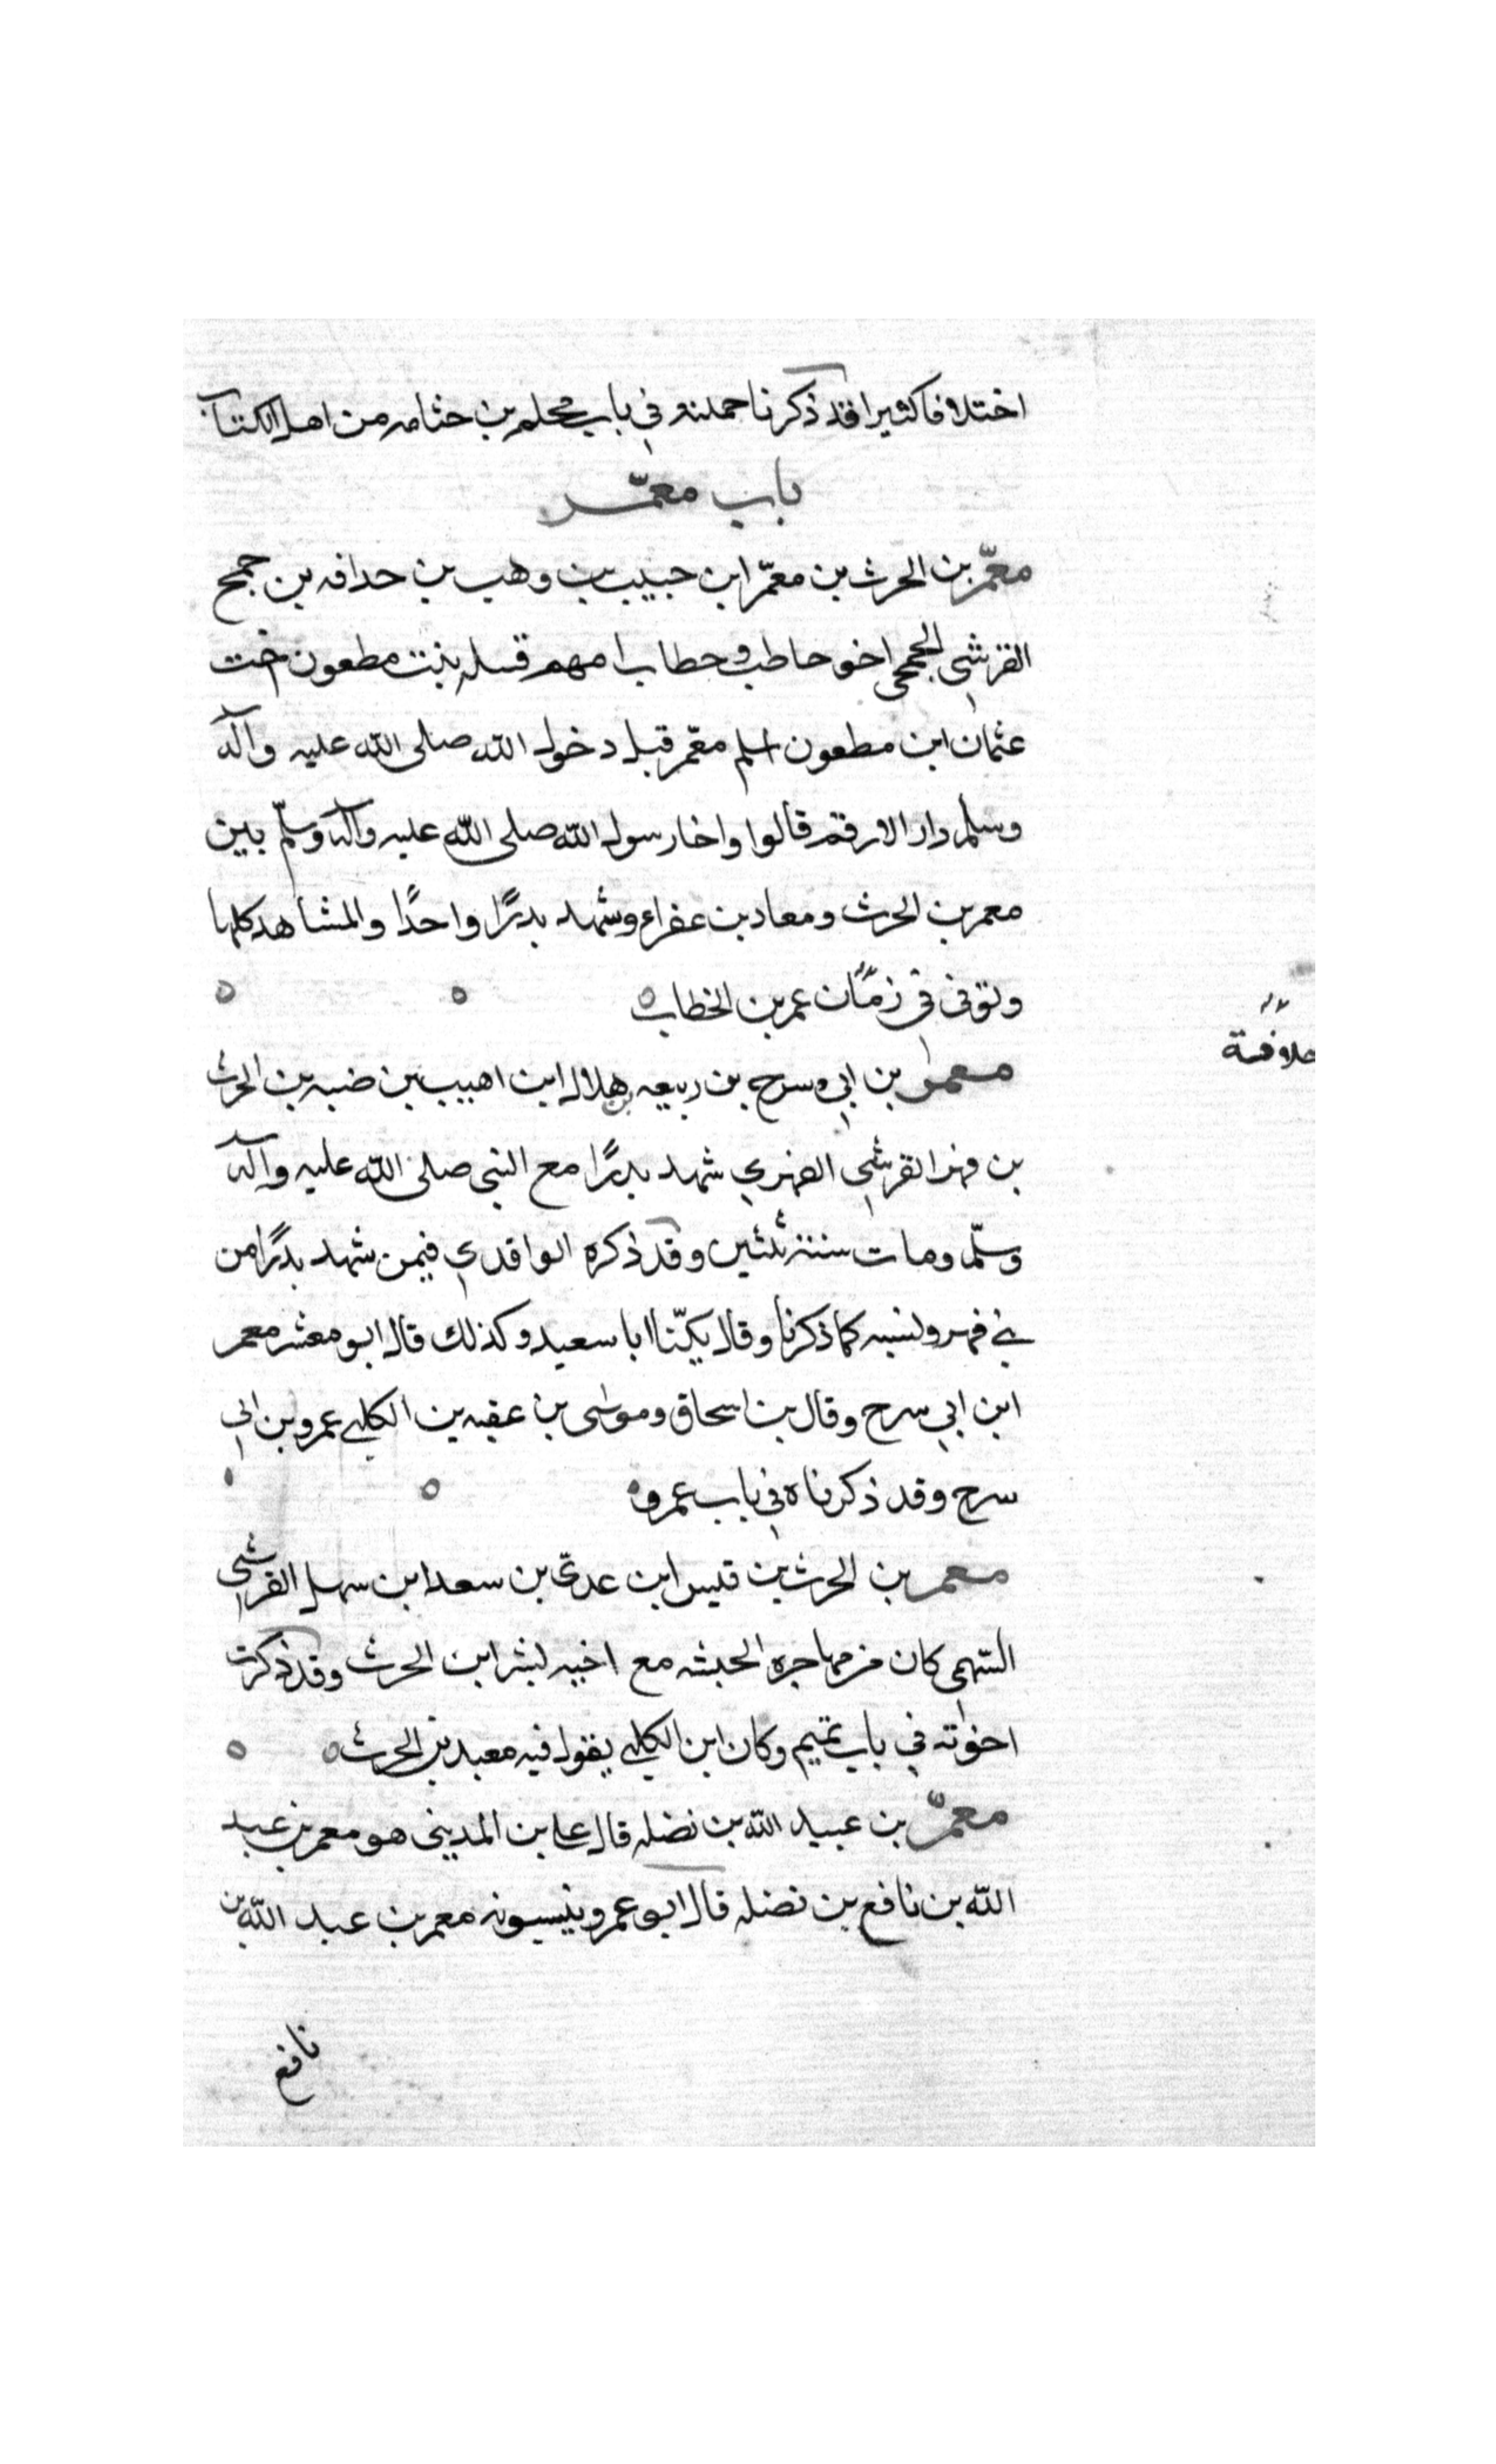 اختلافا كثيرا قد ذكرنا جملته في باب محلم بن جثامه من اهل الكتاب
باب معمّر
معمّر بن الحرث بن معمّر ابن حبيب بن وهب بن حدافه بن جمح
القرشي الجمحي اخو حاطب وحطاب امهم قتيله بنت مطعون اخت
عثمان ابن مطعون اسلم معمّر قبل دخول الله صلى الله عليه وآله
وسلم دار الارقم قالوا واخا رسول الله صلى الله عليه وآله وسلّم بين
معمر بن الحرث ومعاد بن عفراء وشهد بدرًا واحدًا والمشاهد كلها
وتوفي في زمان عمر بن الخطاب
خلافة
معمر بن ابي سرح بن ربيعه بن هلال ابن اهيب بن ضبه بن الحرث
بن فهر القرشي الفهري شهد بدرًا مع النبي صلى الله عليه وآله
وسلّم ومات سنة ثلثين وقد ذكره الواقدي فيمن شهد بدرًا من
بني فهر ونسبه كما ذكرنا وقال يكنّا ابا سعيد وكذلك قال ابو معشر معمر
ابن ابي سرح وقال بن اسحاق وموسى بن عقبه بن الكلبي عمرو بن ابي
سرح وقد ذكرناه في باب عمرو
معمر بن الحرث بن قيس ابن عدي بن سعد ابن سهل القرشي
السّهمي كان من مهاجره الحبشه مع اخيه بشر ابن الحرث وقد ذكرت
اخوته في باب تميم وكان ابن الكلبي يقول فيه معبد بن الحرث
معمّر بن عبيد الله بن نضله قال علي بن المديني هو معمر بن عبد
الله بن نافع بن نضله قال ابو عمر وينسبونه معمر بن عبد الله بن
نافع